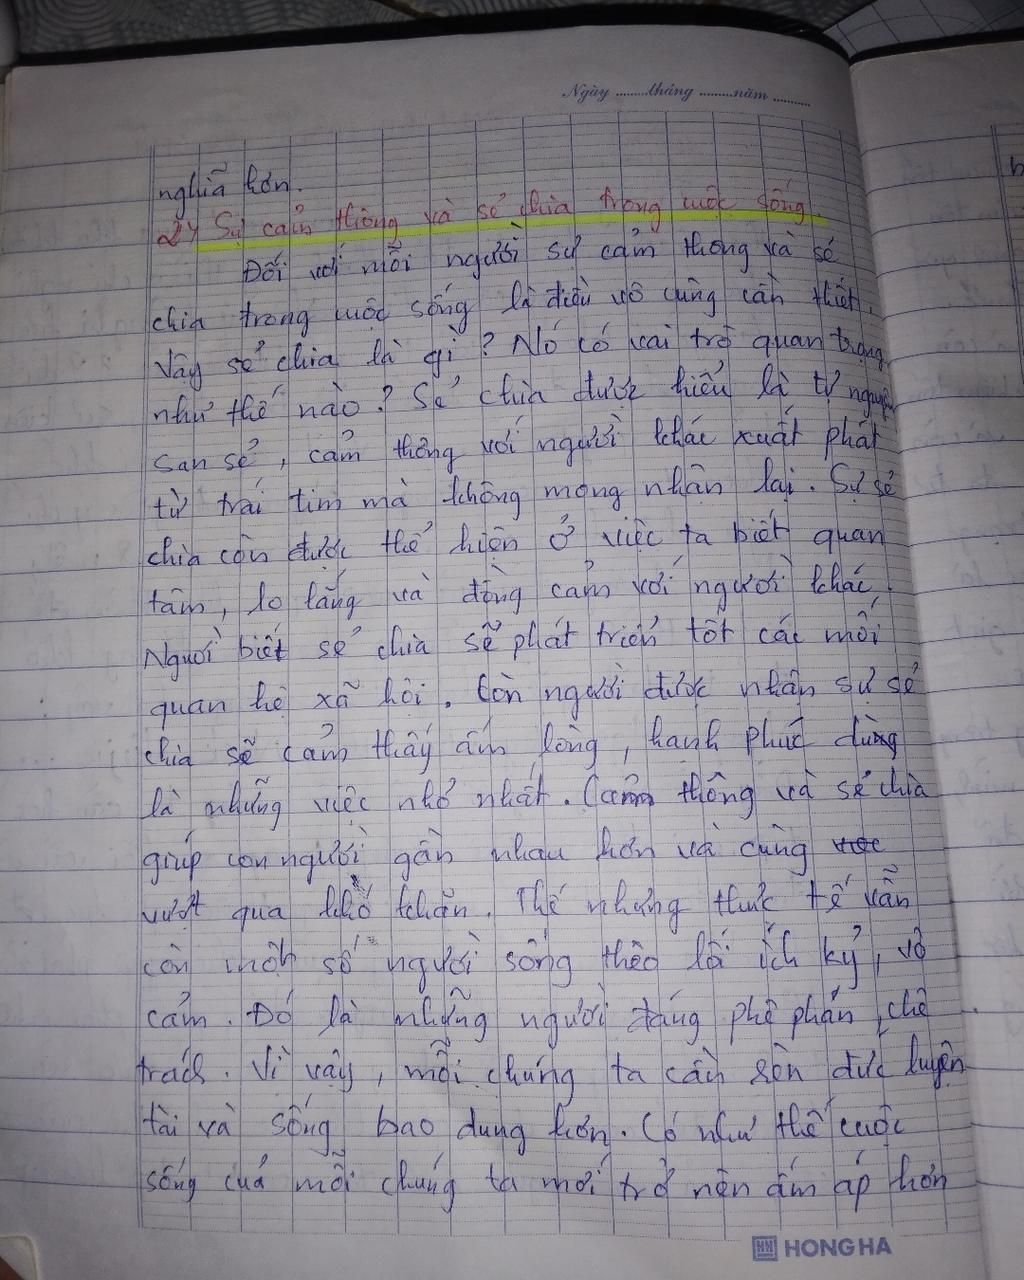 Ngày ........tháng ........năm ..........
nghĩa hơn.
2, Sự cảm thông và sẻ chia trong cuộc sống.
Đối với mỗi người sự cảm thông và sẻ
chia trong cuộc sống là điều vô cùng cần thiết.
Vậy sẻ chia là gì? Nó có vai trò quan trọng
như thế nào? Sẻ chia được hiểu là tự nguyện
san sẻ, cảm thông với người khác xuất phát
từ trái tim mà không mong nhận lại. Sự sẻ
chia còn được thể hiện ở việc ta biết quan
tâm, lo lắng và đồng cảm với người khác.
Người biết sẻ chia sẽ phát triển tốt các mối
quan hệ xã hội. Còn người được nhận sự sẻ
chia sẽ cảm thấy ấm lòng, hạnh phúc dùng
là những việc nhỏ nhất. Cảm thông và sẻ chia
giúp con người gần nhau hơn và cùng
vượt qua khó khăn. Thế nhưng thực tế vẫn
còn một số người sống theo lối ích kỷ, vô
cảm. Đó là những người đáng phê phán, chê
trách. Vì vậy, mỗi chúng ta cần rèn đức luyện
tài và sống bao dung hơn. Có như thế cuộc
sống của mỗi chúng ta mới trở nên ấm áp hơn
HH HONG HA